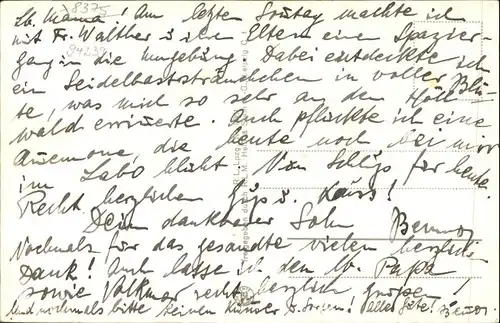 Lb. Mama! Am letzten Sonntag machte ich
mit Fr. Walther u. ihren Eltern einen Spazier-
gang in die Umgebung. Dabei entdeckte ich
ein Seidelbaststräuchchen in voller Blü-
te, was mich so sehr an den Höll-
wald erinnerte. Auch pflückte ich eine
Anemone, die heute noch bei mir
im Labo blüht. Nun Schluß für heute.
Recht herzlichen Gruß u. Kuss!
Dein dankbarer Sohn Benno
Nochmals für das gesandte vielen herzlichen
Dank! Auch lasse ich den lb. Papa
sowie Volkmar recht herzlich grüßen!
Und nochmals bitte keinen Kummer u. Sorgen! Alles Gute! Benno
8375
94239